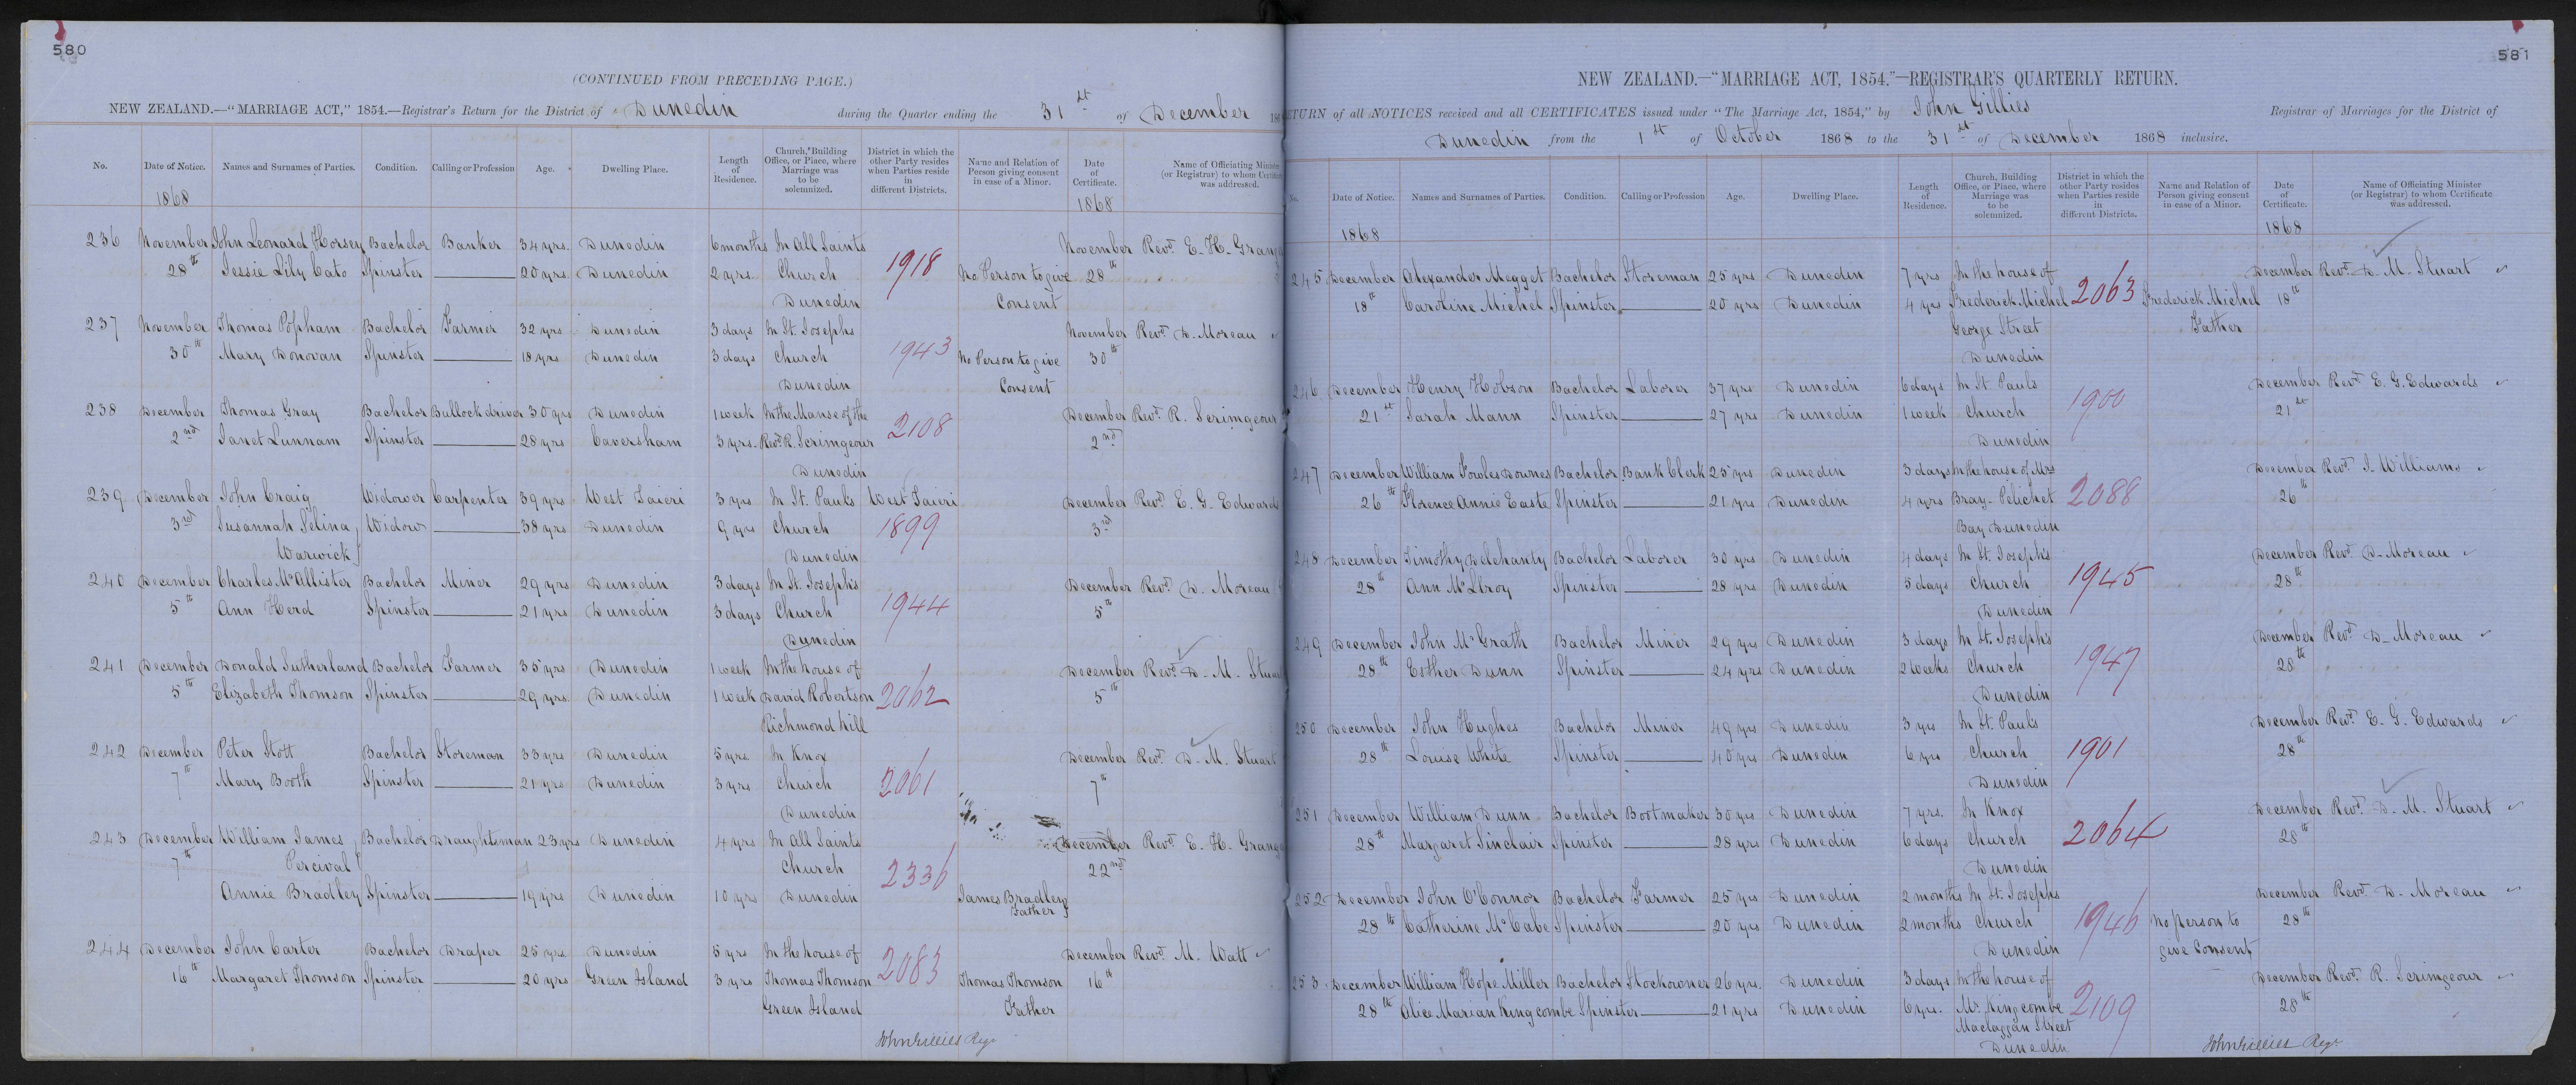 580
(CONTINUED FROM PRECEDING PAGE.)
NEW ZEALAND.—"MARRIAGE ACT," 1854.—Registrar's Return for the District of Dunedin during the Quarter ending the 31st of December 186
No. Date of Notice. Names and Surnames of Parties. Condition. Calling or Profession Age. Dwelling Place. Length of Residence. Church, Building Office, or Place, where Marriage was to be solemnized. District in which the other Party resides when Parties reside in different Districts. Name and Relation of Person giving consent in case of a Minor. Date of Certificate. Name of Officiating Minister (or Registrar) to whom Certificate was addressed.
1868 1868
236 November John Leonard Horsey Bachelor Banker 34 yrs. Dunedin 6 months In All Saints 1918 November Revd. E. H. Grang
28th Jessie Lily Cato Spinster 20 yrs. Dunedin 2 yrs. Church No Person to give 28th
Dunedin Consent
237 November Thomas Popham Bachelor Farmer 32 yrs Dunedin 3 days In St. Josephs 1943 November Revd. D. Moreau
30th Mary Donovan Spinster 18 yrs Dunedin 3 days Church No Person to give 30th
Dunedin Consent
238 December Thomas Gray Bachelor Bullock driver 30 yrs Dunedin 1 week In the Manse of the 2108 December Revd. R. Scrimgeour
2nd Janet Lunnam Spinster 28 yrs Caversham 3 yrs. Revd. R. Scrimgeour 2nd
Dunedin
239 December John Craig Widower Carpenter 39 yrs West Taieri 3 yrs In St. Pauls West Taieri December Revd. E. G. Edwards
3rd Susannah Selina Widow 38 yrs Dunedin 9 yrs Church 1899 3rd
Warwick Dunedin
240 December Charles McAllister Bachelor Miner 29 yrs Dunedin 3 days In St. Josephs 1944 December Revd. D. Moreau
5th Ann Herd Spinster 21 yrs Dunedin 3 days Church 5th
Dunedin
241 December Donald Sutherland Bachelor Farmer 35 yrs Dunedin 1 week In the house of December Revd. D. M. Stuart
5th Elizabeth Thomson Spinster 29 yrs. Dunedin 1 week David Robertson 2062 5th
Richmond Hill
242 December Peter Stott Bachelor Storeman 33 yrs Dunedin 5 yrs. In Knox December Revd. D. M. Stuart
7th Mary Booth Spinster 21 yrs Dunedin 3 yrs Church 2061 7th
Dunedin
243 December William James Bachelor Draughtsman 23 yrs Dunedin 4 yrs In All Saints December Revd. E. H. Grang
7th Percival Church 2336 22nd
Annie Bradley Spinster 19 yrs Dunedin 10 yrs Dunedin James Bradley
Father
244 December John Carter Bachelor Draper 25 yrs Dunedin 5 yrs In the house of 2083 December Revd. M. Watt
16th Margaret Thomson Spinster 20 yrs Green Island 3 yrs Thomas Thomson Thomas Thomson 16th
Green Island Father
John Gillies Regr.
581
NEW ZEALAND.—"MARRIAGE ACT, 1854."—REGISTRAR'S QUARTERLY RETURN.
RETURN of all NOTICES received and all CERTIFICATES issued under "The Marriage Act, 1854," by John Gillies Registrar of Marriages for the District of
Dunedin from the 1st of October 1868 to the 31st of December 1868 inclusive.
No. Date of Notice. Names and Surnames of Parties. Condition. Calling or Profession Age. Dwelling Place. Length of Residence. Church, Building Office, or Place, where Marriage was to be solemnized. District in which the other Party resides when Parties reside in different Districts. Name and Relation of Person giving consent in case of a Minor. Date of Certificate. Name of Officiating Minister (or Registrar) to whom Certificate was addressed.
1868 1868
245 December Alexander Megget Bachelor Storeman 25 yrs Dunedin 7 yrs In the house of 2063 December Revd. D. M. Stuart
18th Caroline Michel Spinster 20 yrs Dunedin 4 yrs Frederick Michel Frederick Michel 18th
George Street Father
Dunedin
246 December Henry Hobson Bachelor Laborer 37 yrs Dunedin 6 days In St. Pauls 1900 December Revd. E. G. Edwards
21st Sarah Mann Spinster 27 yrs Dunedin 1 week Church 21st
Dunedin
247 December William Fowles Downes Bachelor Bank Clerk 25 yrs Dunedin 3 days In the house of Mrs 2088 December Revd. J. Williams
26th Florence Annie Easte Spinster 21 yrs Dunedin 4 yrs Bray. Pelichet 26th
Bay Dunedin
248 December Timothy Delehanty Bachelor Laborer 30 yrs Dunedin 4 days In St. Josephs 1945 December Revd. D. Moreau
28th Ann McIlroy Spinster 28 yrs Dunedin 5 days Church 28th
Dunedin
249 December John McGrath Bachelor Miner 29 yrs Dunedin 3 days In St. Josephs 1947 December Revd. D. Moreau
28th Esther Dunn Spinster 24 yrs Dunedin 2 weeks Church 28th
Dunedin
250 December John Hughes Bachelor Miner 49 yrs Dunedin 3 yrs In St. Pauls December Revd. E. G. Edwards
28th Louise White Spinster 40 yrs Dunedin 6 yrs Church 1901 28th
Dunedin
251 December William Dunn Bachelor Bootmaker 30 yrs Dunedin 7 yrs. In Knox 2064 December Revd. D. M. Stuart
28th Margaret Sinclair Spinster 28 yrs Dunedin 6 days Church 28th
Dunedin
252 December John O'Connor Bachelor Farmer 25 yrs Dunedin 2 months In St. Josephs 1946 December Revd. D. Moreau
28th Catherine McCabe Spinster 20 yrs Dunedin 2 months Church No person to 28th
Dunedin give Consent
253 December William Hope Miller Bachelor Stockowner 26 yrs. Dunedin 3 days In the house of 2109 December Revd. R. Scrimgeour
28th Alice Marian Kingcombe Spinster 21 yrs Dunedin 6 yrs. Mr. Kingcombe 28th
Maclaggan Street
Dunedin
John Gillies Regr.